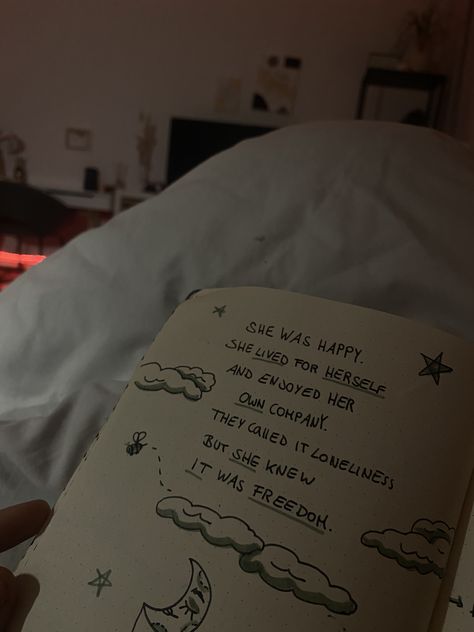 SHE WAS HAPPY.
SHE LIVED FOR HERSELF
AND ENJOYED HER
OWN COMPANY.
THEY CALLED IT LONELINESS
BUT SHE KNEW
IT WAS FREEDOM.